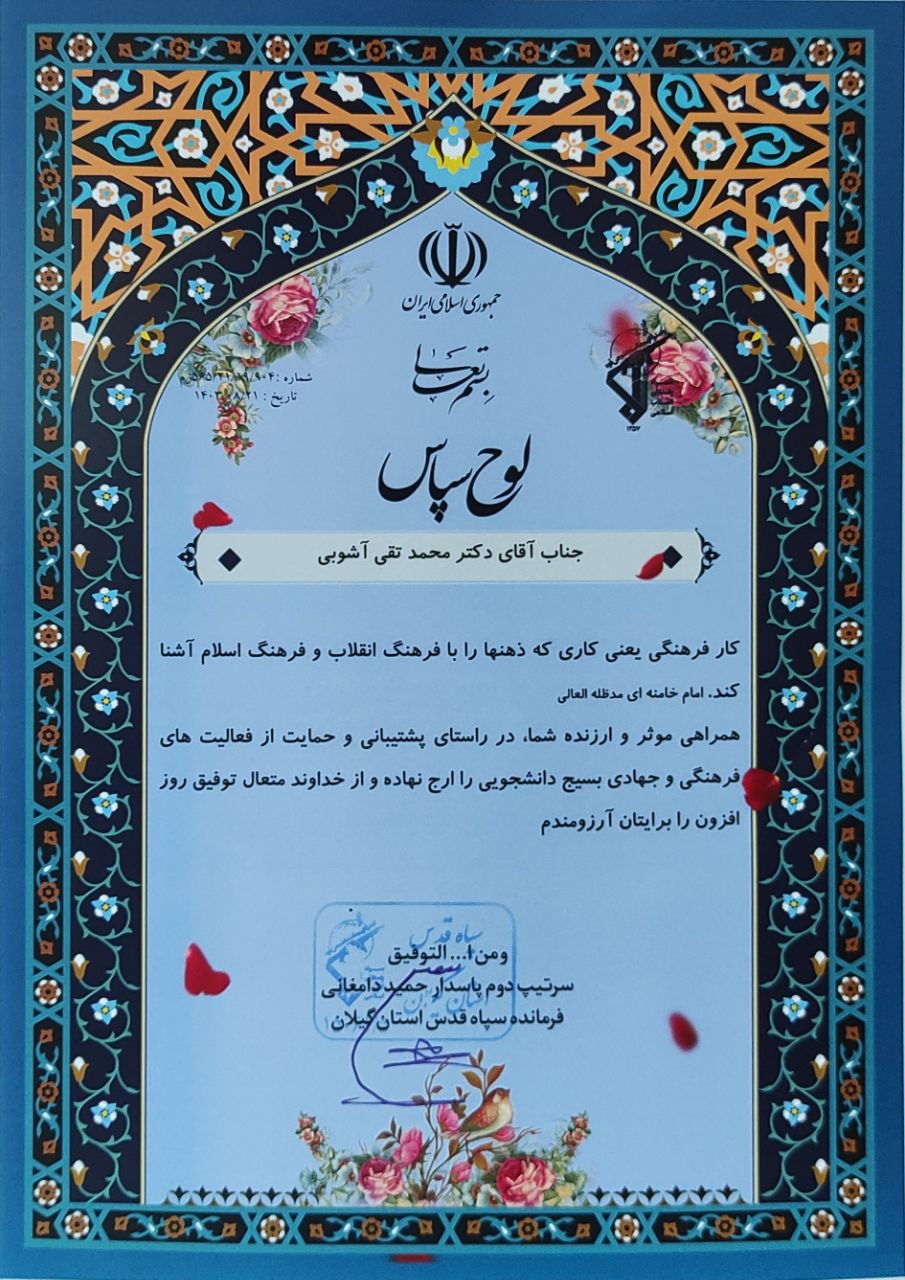 جمهوری اسلامی ایران
بسمه تعالی
شماره :
تاریخ :
۱۳۵۷
لوح سپاس
جناب آقای دکتر محمد تقی آشوبی
کار فرهنگی یعنی کاری که ذهنها را با فرهنگ انقلاب و فرهنگ اسلام آشنا
کند. امام خامنه ای مدظله العالی
همراهی موثر و ارزنده شما، در راستای پشتیبانی و حمایت از فعالیت های
فرهنگی و جهادی بسیج دانشجویی را ارج نهاده و از خداوند متعال توفیق روز
افزون را برایتان آرزومندم
سپاه قدس
ومن ا... التوفیق
سرتیپ دوم پاسدار حمید دامغانی
فرمانده سپاه قدس استان گیلان